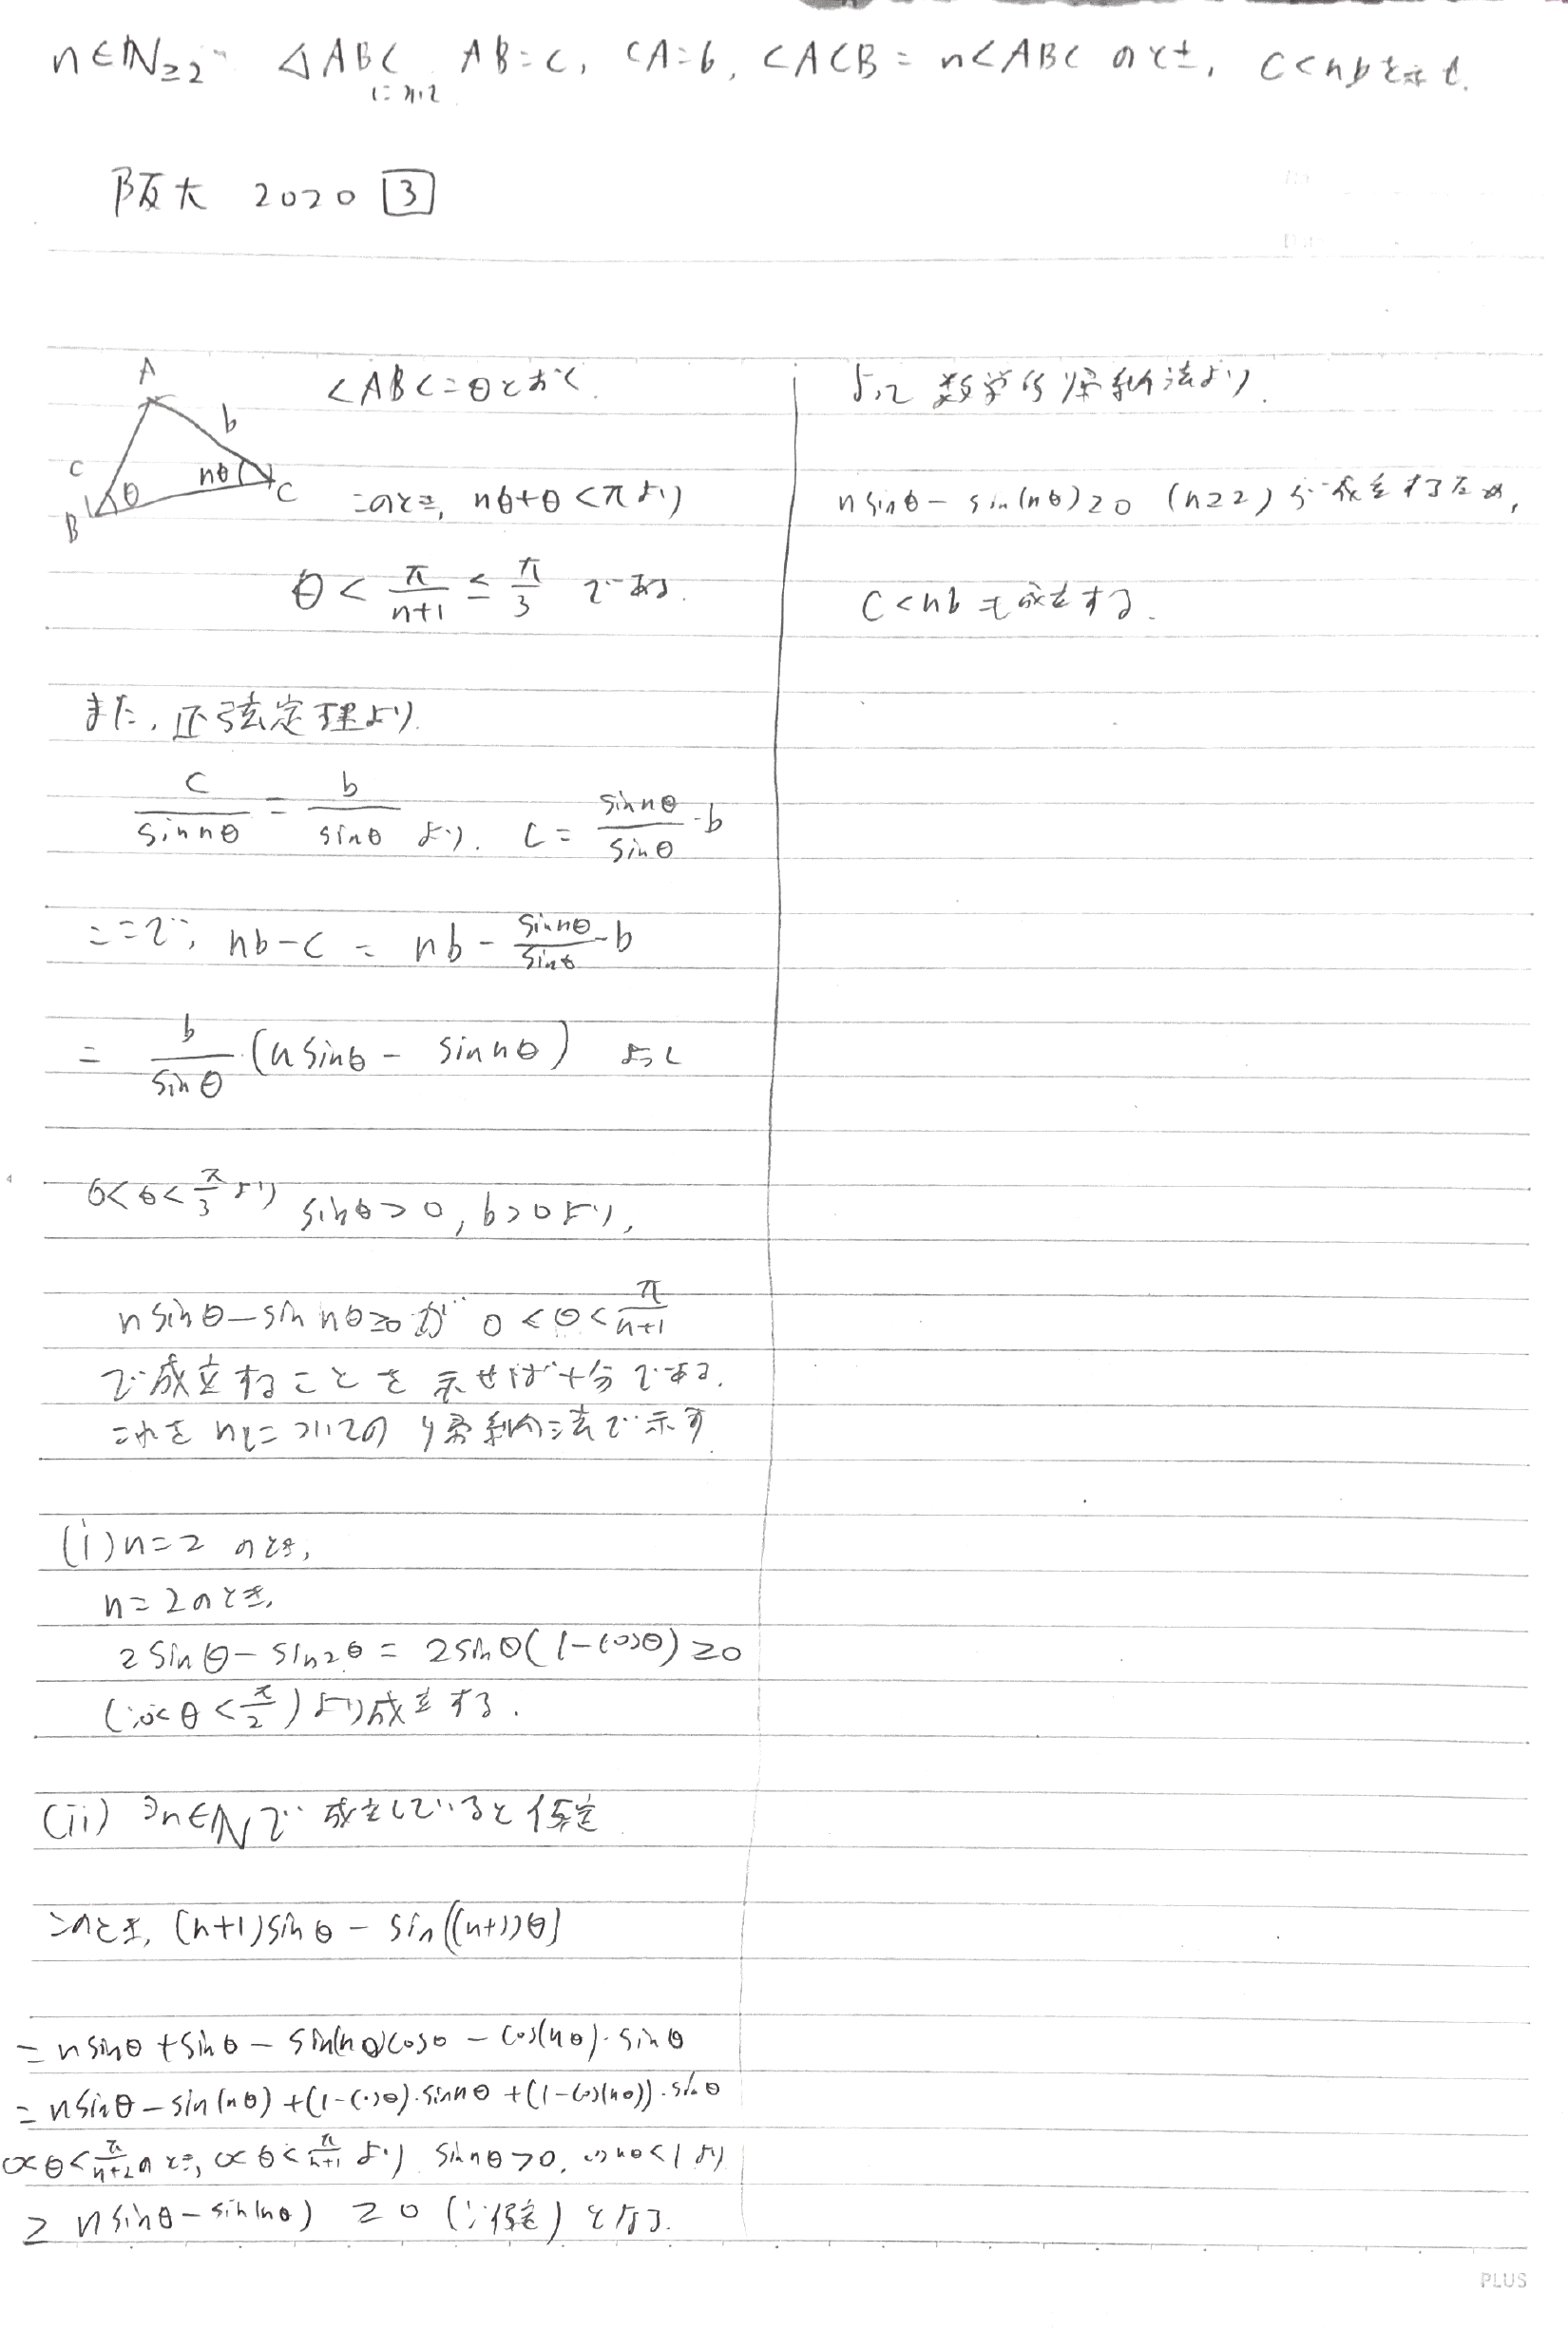 n∈ℕ≥2 △ABCにおいて AB=c, CA=b, ∠ACB=n∠ABC のとき, c<nbを示せ.
阪大 2020 3
A
b
c
nθ
θ
C
B
∠ABC=θとおく
このとき, nθ+θ<πより
θ < π/(n+1) ≦ π/3 である.
また, 正弦定理より
c/sin nθ = b/sinθ より. c = sin nθ/sinθ・b
ここで, nb-c = nb - sin nθ/sinθ・b
= b/sinθ・(n sinθ - sin nθ) よって
0<θ<π/3より sinθ>0, b>0より,
n sinθ - sin nθ≧0 が 0<θ<π/(n+1)
で成立することを示せば十分である.
これをnについての帰納法で示す
(i) n=2 のとき,
n=2のとき,
2sinθ - sin2θ = 2sinθ(1-cosθ)≧0
(∵0<θ<π/2)より成立する.
(ii) ∃n∈ℕで成立していると仮定
このとき, (n+1)sinθ - sin((n+1)θ)
= n sinθ + sinθ - sin(nθ)cosθ - cos(nθ)・sinθ
= n sinθ - sin(nθ) + (1-cosθ)・sin nθ + (1-cos(nθ))・sinθ
0<θ<π/(n+2)のとき, 0<θ<π/(n+1)より sin nθ>0, cos nθ<1より
≧ n sinθ - sin(nθ) ≧0 (∵仮定) となる.
よって数学的帰納法より.
n sinθ - sin(nθ)≧0 (n≧2) が成立するため,
c<nbも成立する.
PLUS